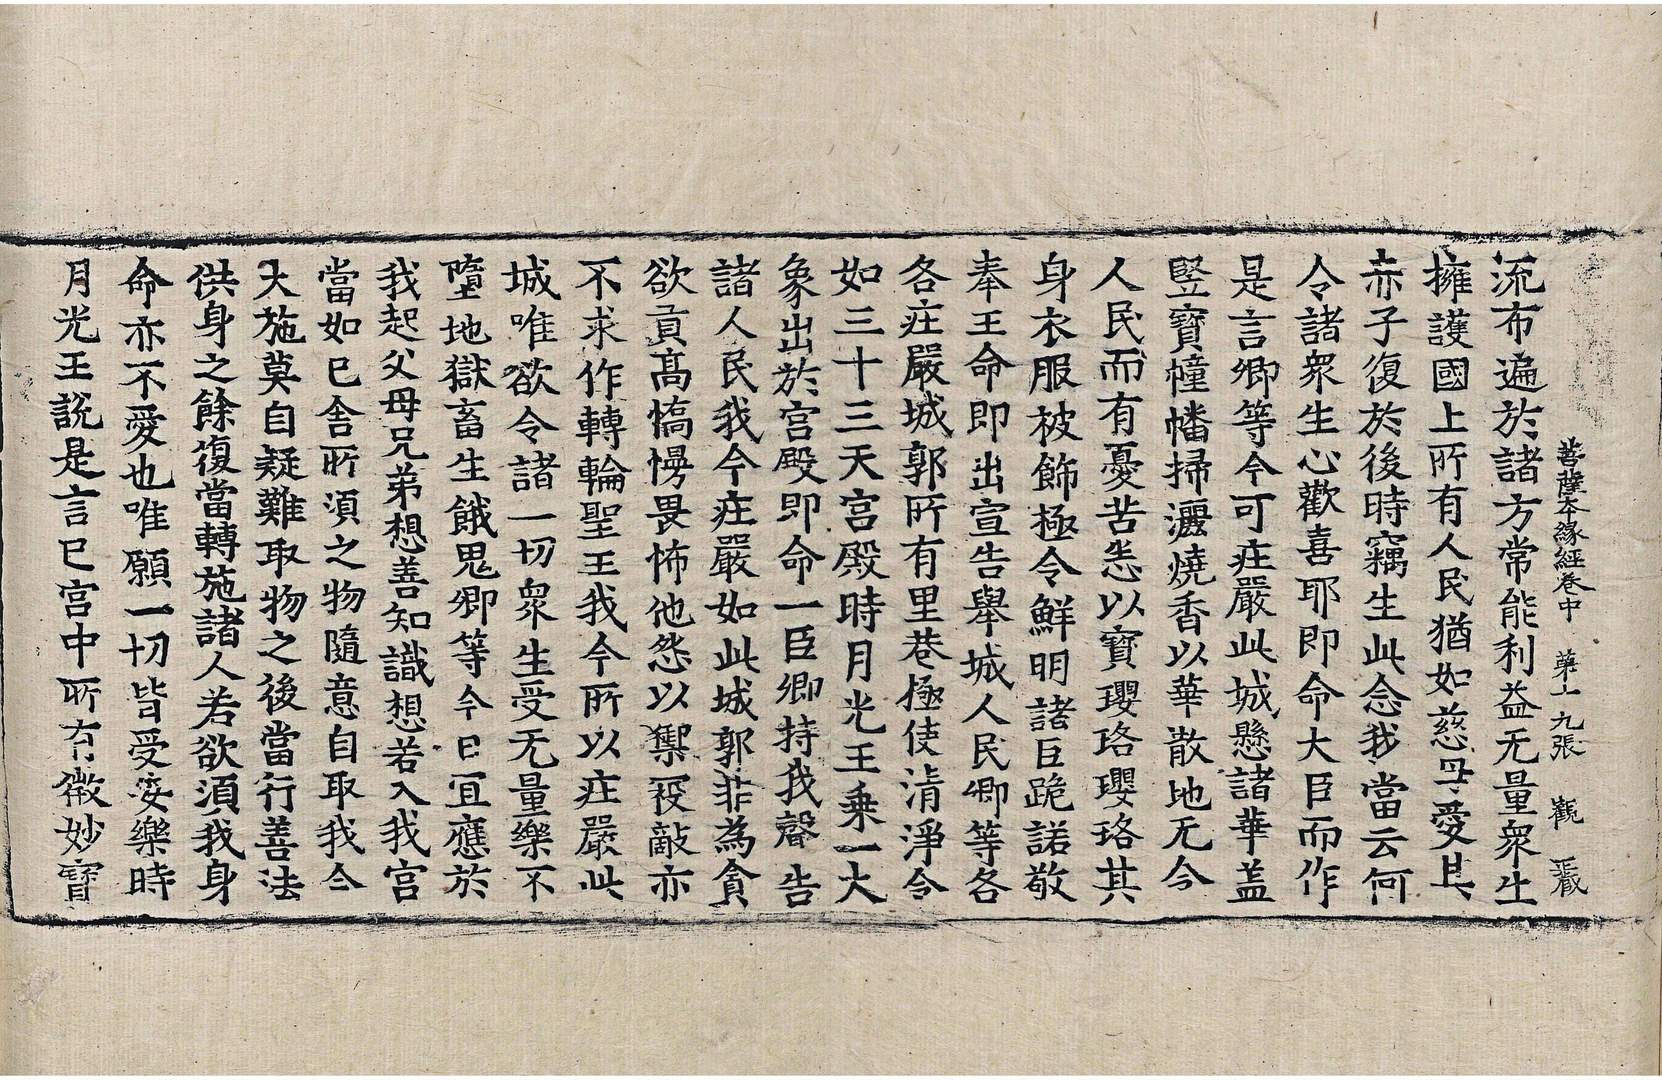 菩薩本緣經卷中 第十九張 觀
流布遍於諸方常能利益无量衆生
擁護國土所有人民猶如慈母愛其
赤子復於後時竊生此念我當云何
令諸衆生心歡喜耶即命大臣而作
是言卿等今可庄嚴此城懸諸華盖
竪寶幢幡掃灑燒香以華散地无令
人民而有憂苦悉以寶瓔珞瓔珞其
身衣服被飾極令鮮明諸臣跪諾敬
奉王命即出宣告舉城人民卿等各
各庄嚴城郭所有里巷極使清淨令
如三十三天宮殿時月光王乘一大
象出於宮殿即命一臣卿持我聲告
諸人民我今庄嚴如此城郭非為貪
欲貢高憍慢畏怖他怨以禦寇敵亦
不求作轉輪聖王我今所以庄嚴此
城唯欲令諸一切衆生受无量樂不
墮地獄畜生餓鬼卿等今日宜應於
我起父母兄弟想善知識想若入我宮
當如已舍所須之物隨意自取我今
大施莫自疑難取物之後當行善法
供身之餘復當轉施諸人若欲須我身
命亦不愛也唯願一切皆受安樂時
月光王說是言已宮中所有微妙寶